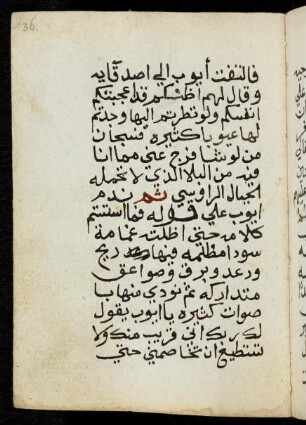 36
فالتفت أيوب الي اصدقايه
وقال لهم اظنكم قد اعجبتكم
انفسكم ولو نظرتم اليها وجدتم
لها عيوبا كثيره فسبحان
من لو شا فرج عني مما انا
فيه من البلا الذي لا تحمله
الجبال الرواسي ثم ندم
ايوب علي قوله فما استتم
كلامه حتي اظلته غمامة
سودا مظلمه فيها ريح
ورعد وبرق وصواعق
متداركه ثم نودي منها با
صوات كثيره يا ايوب يقول
لك ربك اني قريب منك ولا
تستطيع ان تخاصمني حتي